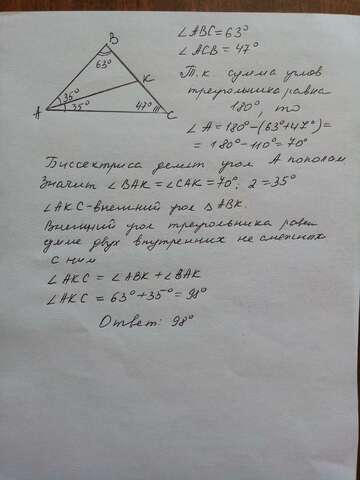 ∠ABC = 63°
∠ACB = 47°
B
63°
K
A
35°
35°
47°
C
Т.к. сумма углов
треугольника равна
180°, то
∠A = 180° - (63° + 47°) =
= 180° - 110° = 70°
Биссектриса делит угол A пополам
Значит ∠BAK = ∠CAK = 70° : 2 = 35°
∠AKC - внешний угол △ ABK.
Внешний угол треугольника равен
сумме двух внутренних не смежных
с ним
∠AKC = ∠ABK + ∠BAK
∠AKC = 63° + 35° = 98°
Ответ: 98°